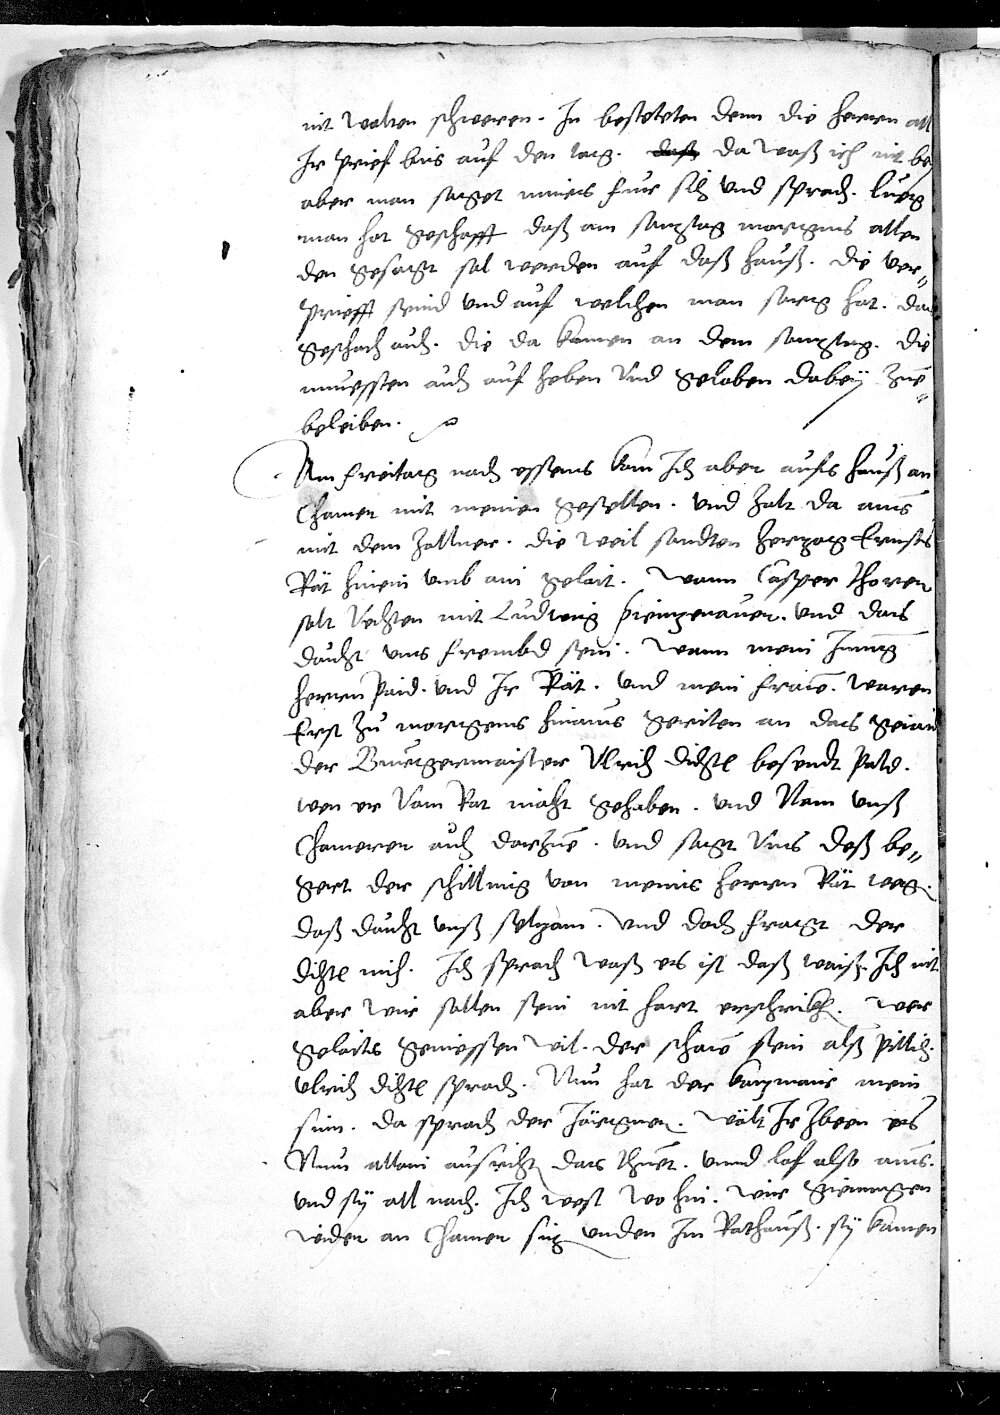 nit wolten schweren. In besteteten dem die herrn all
Ir brief bis auf den tag. da waß ich nit bey
aber man saget miers für sich und sprach. lueg
man hat geschafft daß am samßtag morgens allen
den gesagt sol werden auf daß hauß. die ver-
briefft seind und auf welchen man sorg hat. da
geschach auch. die da kamen an dem samßtag. die
muessten auch auf heben und geloben dabeÿ zue
beleiben.
Am freitag nach essens kam Ich aber aufs hauß an
Chamer mit meinen gesellen. und zalt da auß
mit dem zollner. die weil sandten herzog Ernsts
Rät hinein umb ain gelait. wann Casper thorer
solt vechten mit Ludwig Prienzenauer. und das
daucht uns frembd sein. wann mein Jung
herrn baid. und Ir Rät. und mein fraw. waren
Erst zu morgens hinaus geriten an das geiaid
der Burgermaister Ulrich dichtl besendt bald.
wen er vom Rat mocht gehaben. und Nam unß
Chamerer auch darzue. und sagt uns deß be-
gert der schilling von meins herrn Rät weg.
daß daucht unß selzam. und doch fragt der
dichtl mich. Ich sprach waß es ist daß waiß Ich nit
aber wir sollen sein nit hart erschrikh. wer
gelaits geniessen wil. der schaw sein alß pillich.
Ulrich dichtl sprach. Nun hat der kaufman mein
sinn. da sprach der Järgner. wölt Ir Zween es
Nun allain ausricht das thuet. unnd lof also aus.
und sÿ all nach. Ich west wo hin. wir giengen
wider an Chamer sich unden Im Rathauß. sÿ kamen